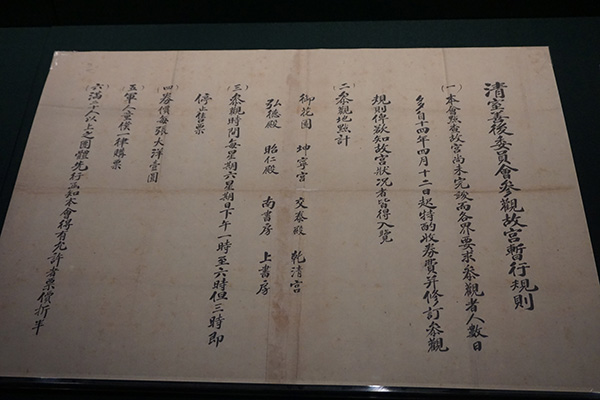 清室善後委員會參觀故宮暫行規則
(一)本會點查故宮尚未完竣而各界要求參觀者人數日
多自十四年四月十二日起特酌收券費并修訂參觀
規則俾欲知故宮狀况者皆得入覽
(二)參觀地點計
御花園 坤寧宮 交泰殿 乾清宮
弘德殿 昭仁殿 南書房 上書房
(三)參觀時間每星期六星期日下午一時至六時但三時即
停止售票
(四)券價每張大洋壹圓
(五)軍人童僕一律購票
(六)滿二十人以上之團體先行函知本會得有允許者票價折半